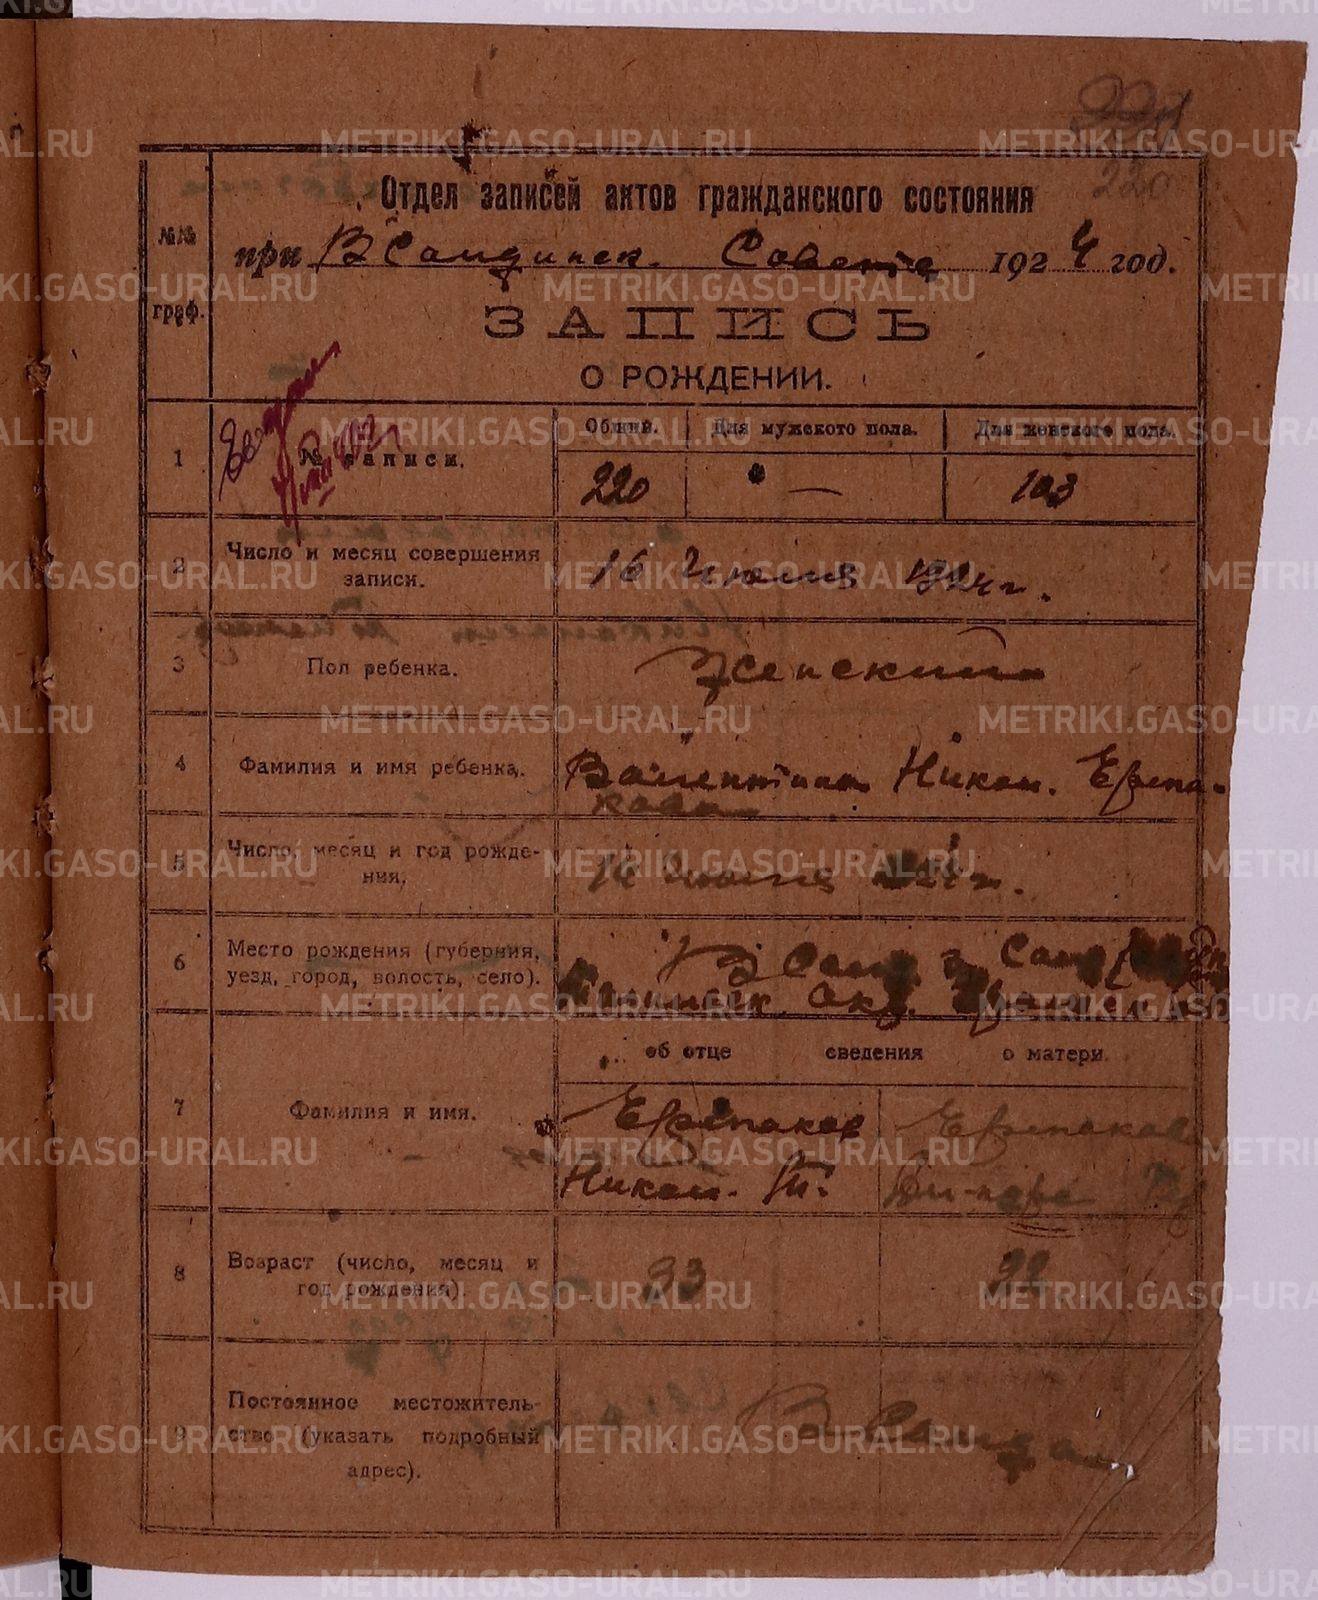 220
Отдел записей актов гражданского состояния
№№ граф.
при В Салдинск. Совете 1924 год.
ЗАПИСЬ
О РОЖДЕНИИ.
1 № записи. Общий. Для мужского пола. Для женского пола.
220 — 103
2 Число и месяц совершения записи. 16 Июля 1924 г.
3 Пол ребенка. Женский
4 Фамилия и имя ребенка. Валентина Никол. Ермакова
5 Число, месяц и год рождения. Июля 24 г.
6 Место рождения (губерния, уезд, город, волость, село). В Салд.
окр. Урал
об отце сведения о матери.
7 Фамилия и имя. Ермаков Ермакова
Никол.
8 Возраст (число, месяц и год рождения). 23 22
9 Постоянное местожительство (указать подробный адрес). В Салда
METRIKI.GASO-URAL.RU